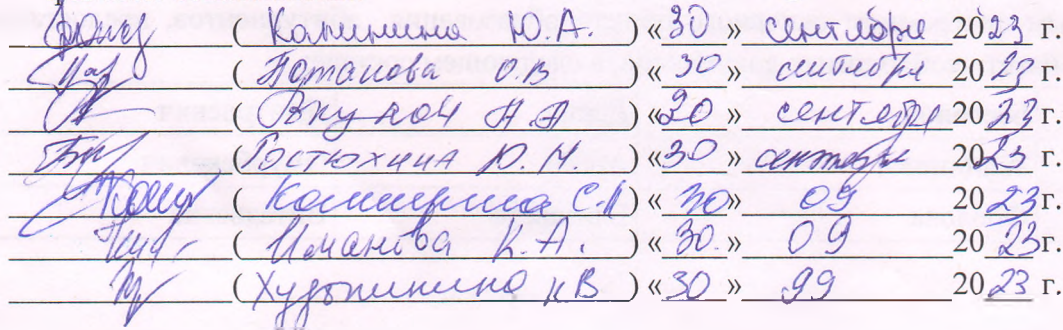 ( Калинина Ю.А. ) «30» сентября 2023 г.
( Потапова О.В ) «30» сентября 2023 г.
( А А ) «30» сентября 2023 г.
( Гостюхина Ю. Н. ) «30» сентября 2023 г.
( Каширина С.А ) «30» 09 2023 г.
( Иманова К.А. ) «30.» 09 2023 г.
( КВ ) «30» 09 2023 г.